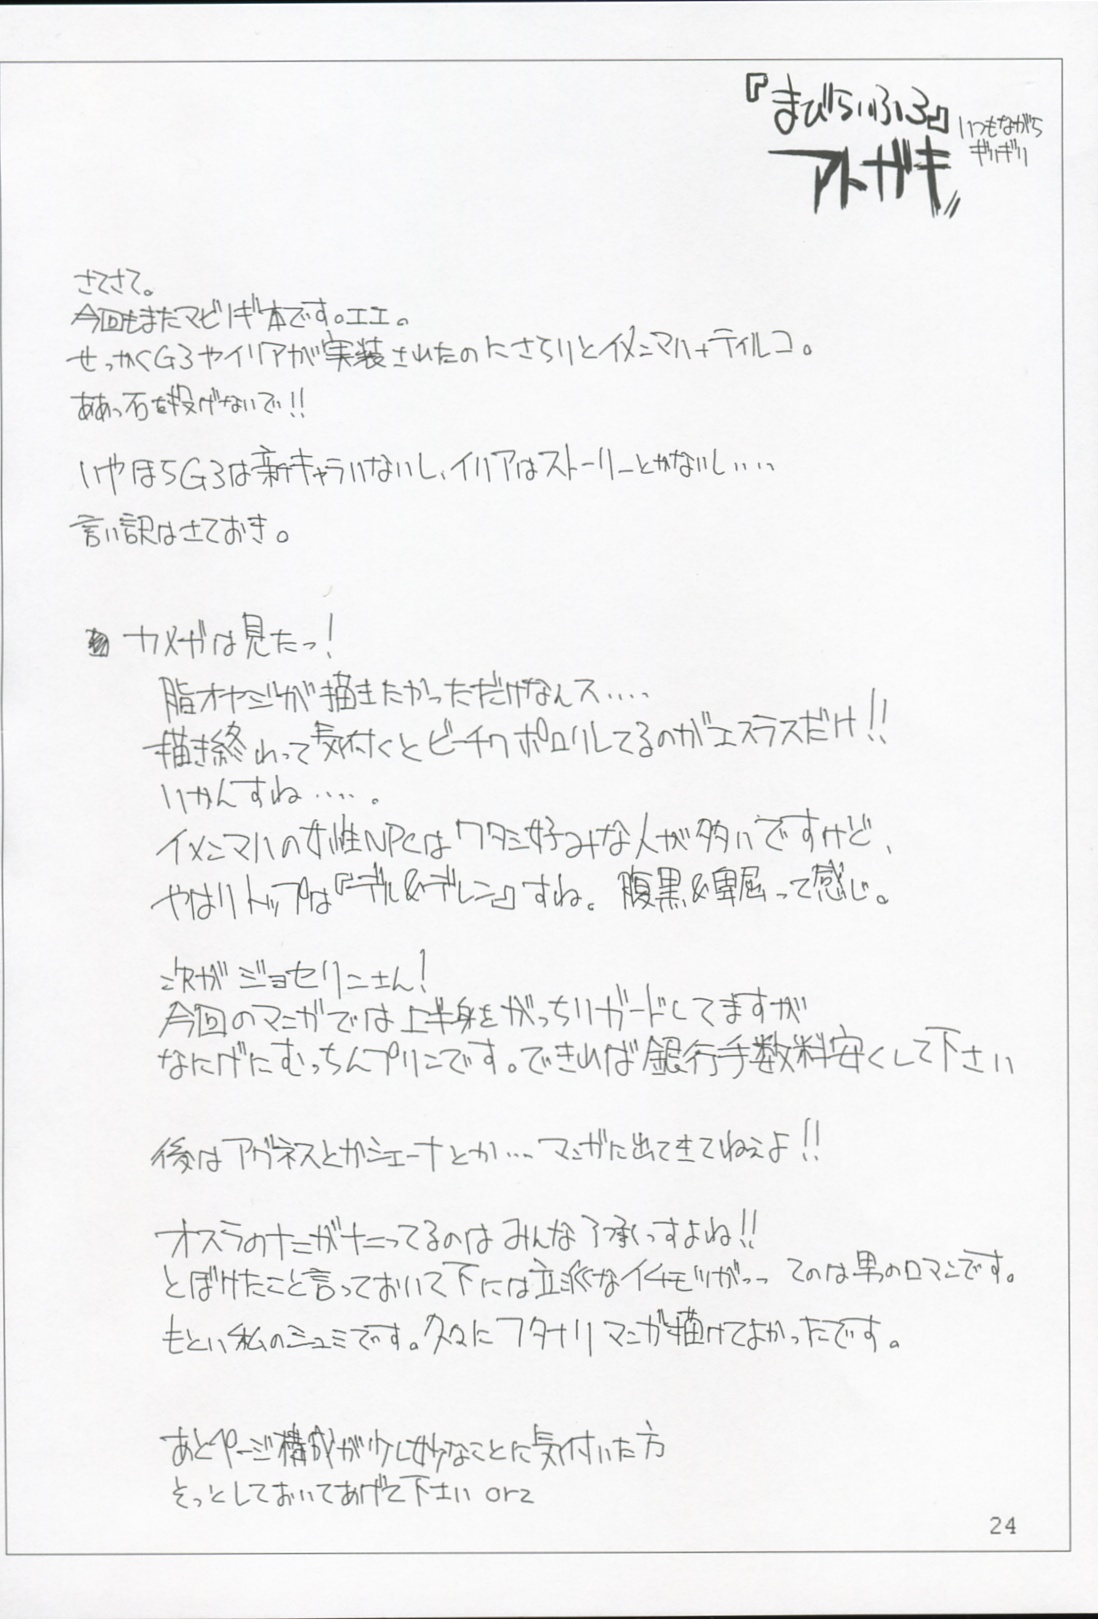 『まびらいふ3』
アトガキ
いつもながら
ギリギリ
さてさて。
今回もまたマビノギ本です。エエ。
せっかくG3やイリアが実装されたのにさらりとイメンマハ+ティルコ。
ああっ石を投げないで!!
いやほらG3は新キャラいないし、イリアはストーリーとかないし‥‥
言い訳はさておき。
カメガは見たっ!
脂オヤジが描きたかっただけなんス‥‥
描き終わって気付くとビーチクポロリしてるのがエスラスだけ!!
いかんすね‥‥。
イメンマハの女性NPCはワタシ好みな人が多いですけど、
やはりトップは『デル&デレン』すね。腹黒&卑屈って感じ。
次がジョセリンさん!
今回のマンガでは上半身をがっちりガードしてますが
なにげにむっちんプリンです。できれば銀行手数料安くして下さい
後はアグネスとかシェーナとか‥‥マンガに出て来てねえよ!!
オスラのナニがナニってるのはみんな了承っすよね!!
とぼけたこと言っておいて下には立派なイチモツがっっ てのは男のロマンです。
もとい私のシュミです。久々にフタナリマンガ描けてよかったです。
あとページ構成が少し妙なことに気付いた方
そっとしておいてあげて下さい orz
24